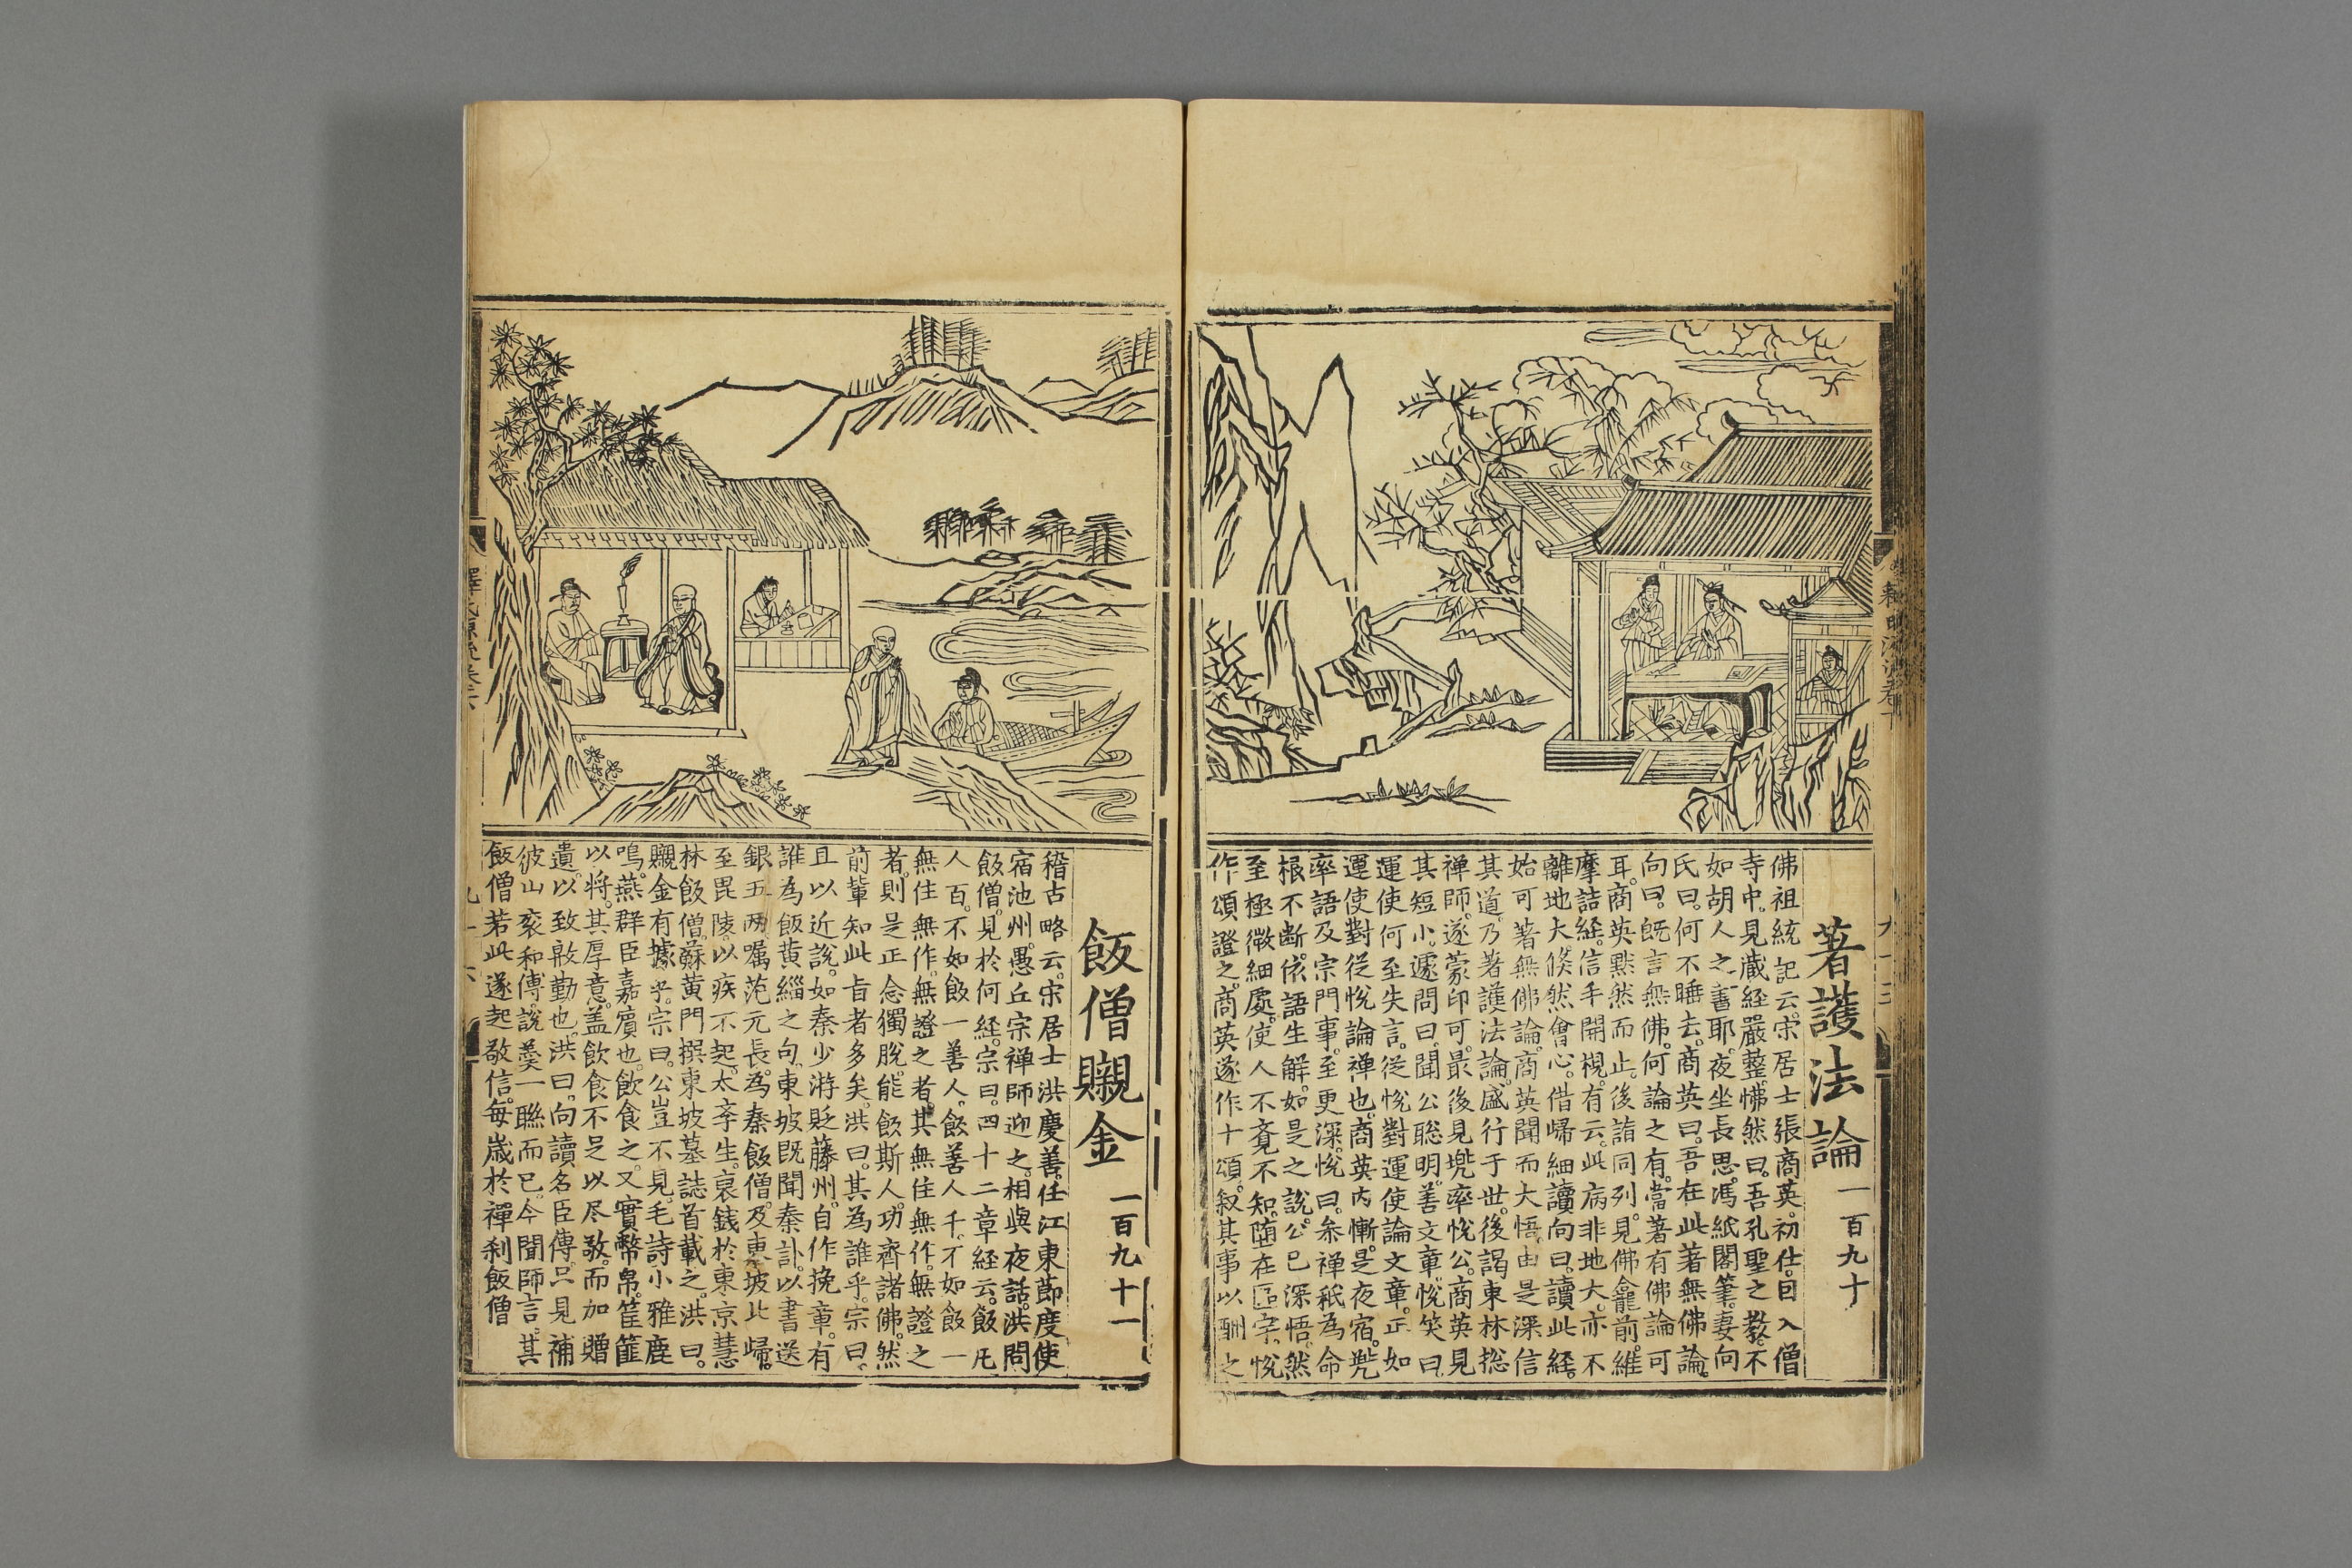 著護法論 一百九十
佛祖統記云。宋居士張商英。初仕。因入僧
寺中。見藏経嚴整。怫然曰。吾孔聖之教。不
如胡人之書耶。夜坐長思。馮紙閣筆。妻向
氏曰。何不睡去。商英曰。吾在此著無佛論。
向曰。既言無佛。何論之有。當著有佛論可
耳。商英黙然而止。後詣同列。見佛龕前。維
摩詰経。信手開視。有云。此病非地大。亦不
離地大。倐然會心。借歸細讀。向曰。讀此経。
始可著無佛論。商英聞而大悟。由是深信
其道。乃著護法論。盛行于世。後謁東林捴
禅師。遂蒙印可。最後見兠率恱公。商英見
其短小。遽問曰。聞公聡明。善文章。恱笑曰。
運使何至失言。従恱對運使論文章。正如
運使對従恱論禅也。商英内慚。是夜宿。兠
率語及宗門事。至更深。恱曰。叅禅秪為命
根不断。依語生解。如是之說。公已深悟。然
至極微細處。使人不覔不知。堕在區宇。恱
作頌證之。商英遂作十頌。叙其事以酬之
飯僧䞋金 一百九十一
稽古略云。宋居士洪慶善。任江東莭度使
宿池州。愚丘宗禅師迎之。相與夜話。洪問
飯僧。見於何経。宗曰。四十二章経云。飯凡
人百。不如飯一善人。飯善人千。不如飯一
無住無作。無證之者。其無住無作。無證之
者。則是正念獨脫。能飲斯人。功齊諸佛。然
前輩知此㫖者多矣。洪曰。其為誰乎。宗曰。
且以近說。如秦少游貶藤州。自作挽章。有
誰為飯黄緇之句。東坡既聞秦訃。以書送
銀五两。嘱范元長。為秦飯僧。及東坡北歸。
至毘陵。以疾不起。太斈生。裒銭於東京慧
林飯僧。蘇黄門撰東坡墓誌首載之。洪曰。
䞋金有據乎。宗曰。公豈不見。毛詩小雅鹿
鳴。燕群臣嘉賓也。飲食之。又實幣帛。筐篚
以将。其厚意。盖飲食不足以尽敬。而加贈
遺。以致殷勤也。洪曰。向讀名臣傳。只見補
彼山衮和傅說羹一聮而已。今聞師言。其
飯僧若此。遂起敬信。每嵗於禪刹飯僧